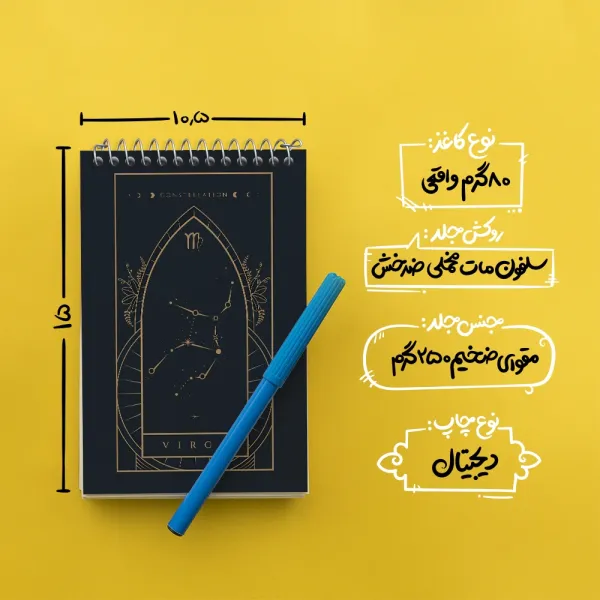 ۱۰٫۵
۱۵
CONSTELLATION
VIRGO
نوع کاغذ:
۸۰گرم واقعی
روکش جلد:
سلفون مات مخملی ضدخش
جنس جلد:
مقوای ضخیم ۲۵۰گرم
نوع چاپ:
دیجیتال